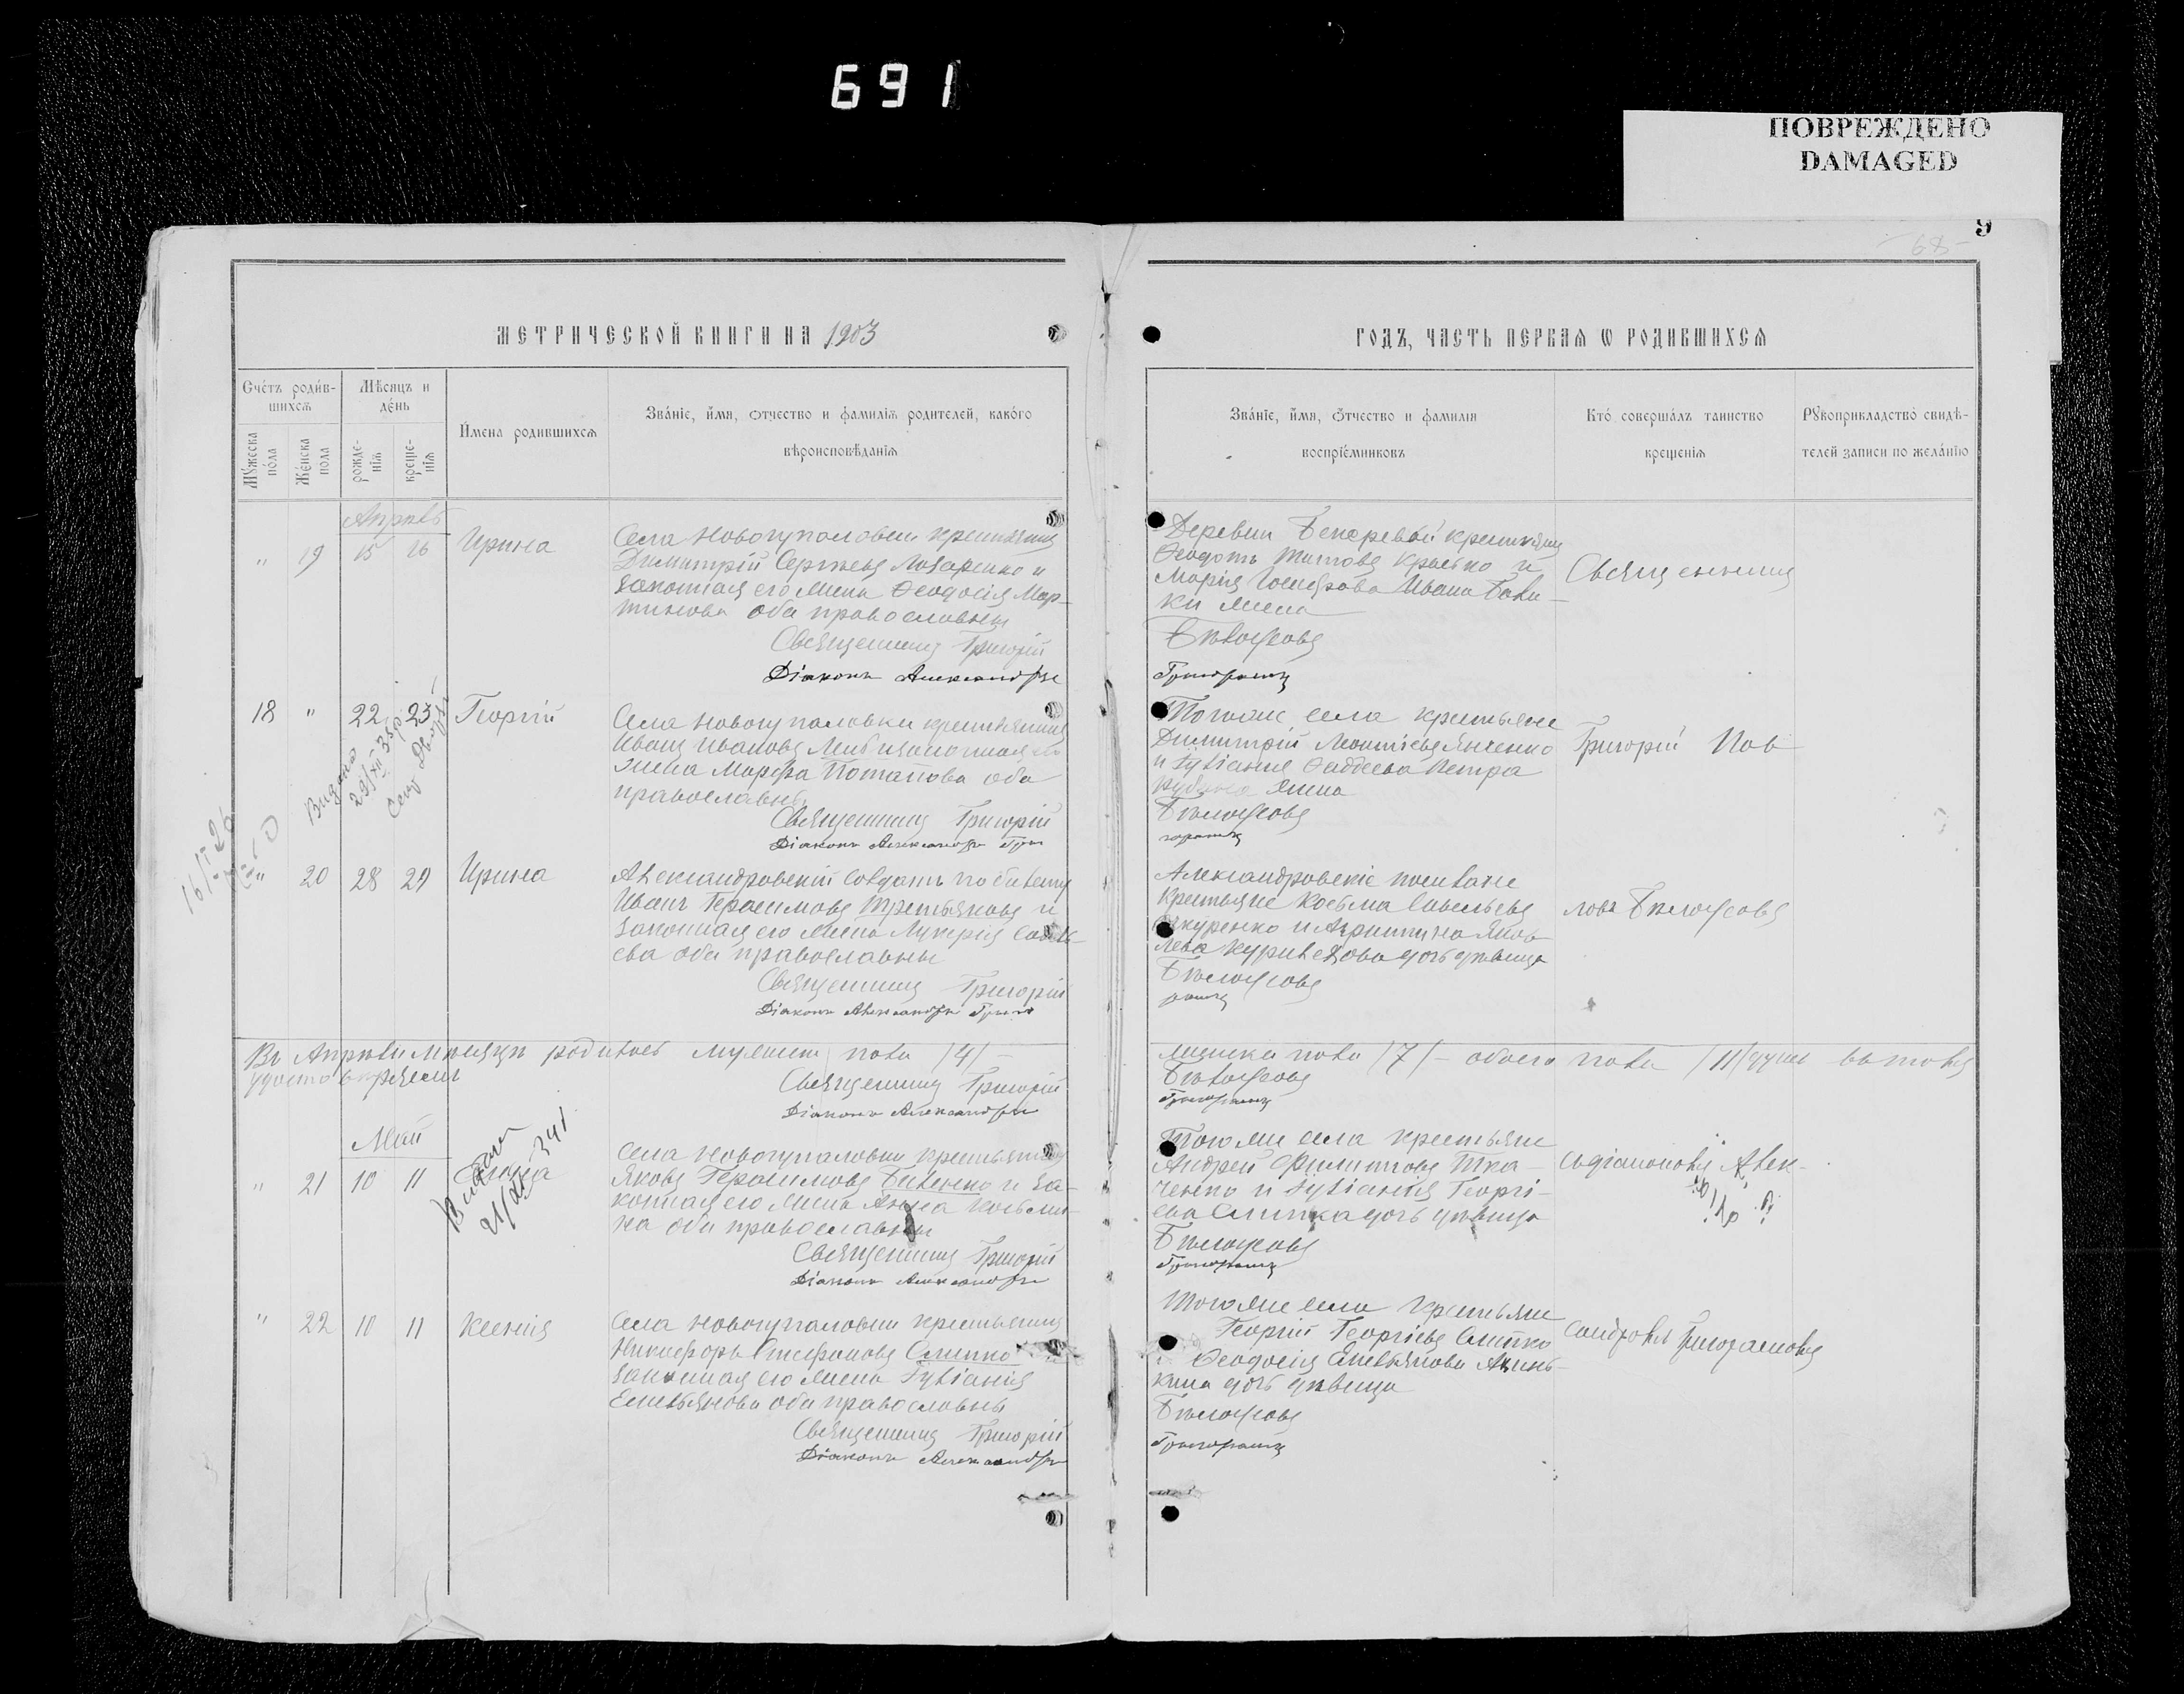 691
ПОВРЕЖДЕНО
DAMAGED
9
68
МЕТРИЧЕСКОЙ КНИГИ НА 1903
ГОДЪ, ЧАСТЬ ПЕРВАЯ Ѡ РОДИВШИХСЯ
Счетъ родив-
шихся
Мѣсяцъ и
день
Мужеска
пола
Женска
пола
рожде-
нія
креще-
нія
Имена родившихся
Званіе, имя, отчество и фамилія родителей, какого
вѣроисповѣданія
Званіе, имя, отчество и фамилія
воспріемниковъ
Кто совершалъ таинство
крещенія
Рукоприкладство свидѣ-
телей записи по желанію
Апрѣль
" 19 15 16 Ирина
Села Новогупаловки крестьянинъ
Димитрій Сергѣевъ Лазаренко и
законная его жена Ѳеодосія Мар-
тинова оба православны
Священникъ Григорій
Діаконъ Александръ
Деревни крестьянинъ
Ѳеодотъ Титовъ и
Марія Ивана
жена
Бѣлоусовъ
Григорашъ
Священникъ
18 " 22 23 Георгій
Села Новогупаловки крестьянинъ
Иванъ Ивановъ законная его
жена Марфа Потапова оба
православны
Священникъ Григорій
Діаконъ Александръ Гри
Тогоже села крестьяне
Димитрій Леонтіевъ Янченко
и Евѳимія Ѳаддеева Петра
жена
Бѣлоусовъ
горашъ
Григорій
Видана
29/XII 35 р.
" 20 28 29 Ирина
Александровскій солдатъ по билету
Иванъ Герасимовъ Третьяковъ и
законная его жена Лукерія Савель-
ева оба православны
Священникъ Григорій
Діаконъ Александръ Григо
Александровскіе
крестьяне Косьма Савельевъ
и Агриппина Яков-
лева дочь дѣвица
Бѣлоусовъ
рашъ
Бѣлоусовъ
16/I 26
Въ Апрѣлѣ мѣсяцѣ родилось мужеска пола /4/ –
женска пола /7/ – обоего пола /11/ душъ
Священникъ Григорій
Діаконъ Александръ
Бѣлоусовъ
Григорашъ
Май
" 21 10 11 Елена
Села Новогупаловки крестьянинъ
Яковъ Герасимовъ и за-
конная его жена Анна Косьми-
на оба православны
Священникъ Григорій
Діаконъ Александръ
Тогоже села крестьяне
Андрей Филипповъ Тка-
ченко и Георгі-
ева Слипка дочь дѣвица
Бѣлоусовъ
Григорашъ
съ діакономъ Алек-
" 22 10 11 Ксенія
Села Новогупаловки крестьянинъ
Никифоръ Стефановъ Слипко и
законная его жена
Емельянова оба православны
Священникъ Григорій
Діаконъ Александръ
Тогоже села крестьяне
Георгій Георгіевъ Слипко
и Ѳеодосія Емельянова
дочь дѣвица
Бѣлоусовъ
Григорашъ
сандромъ Григорашомъ